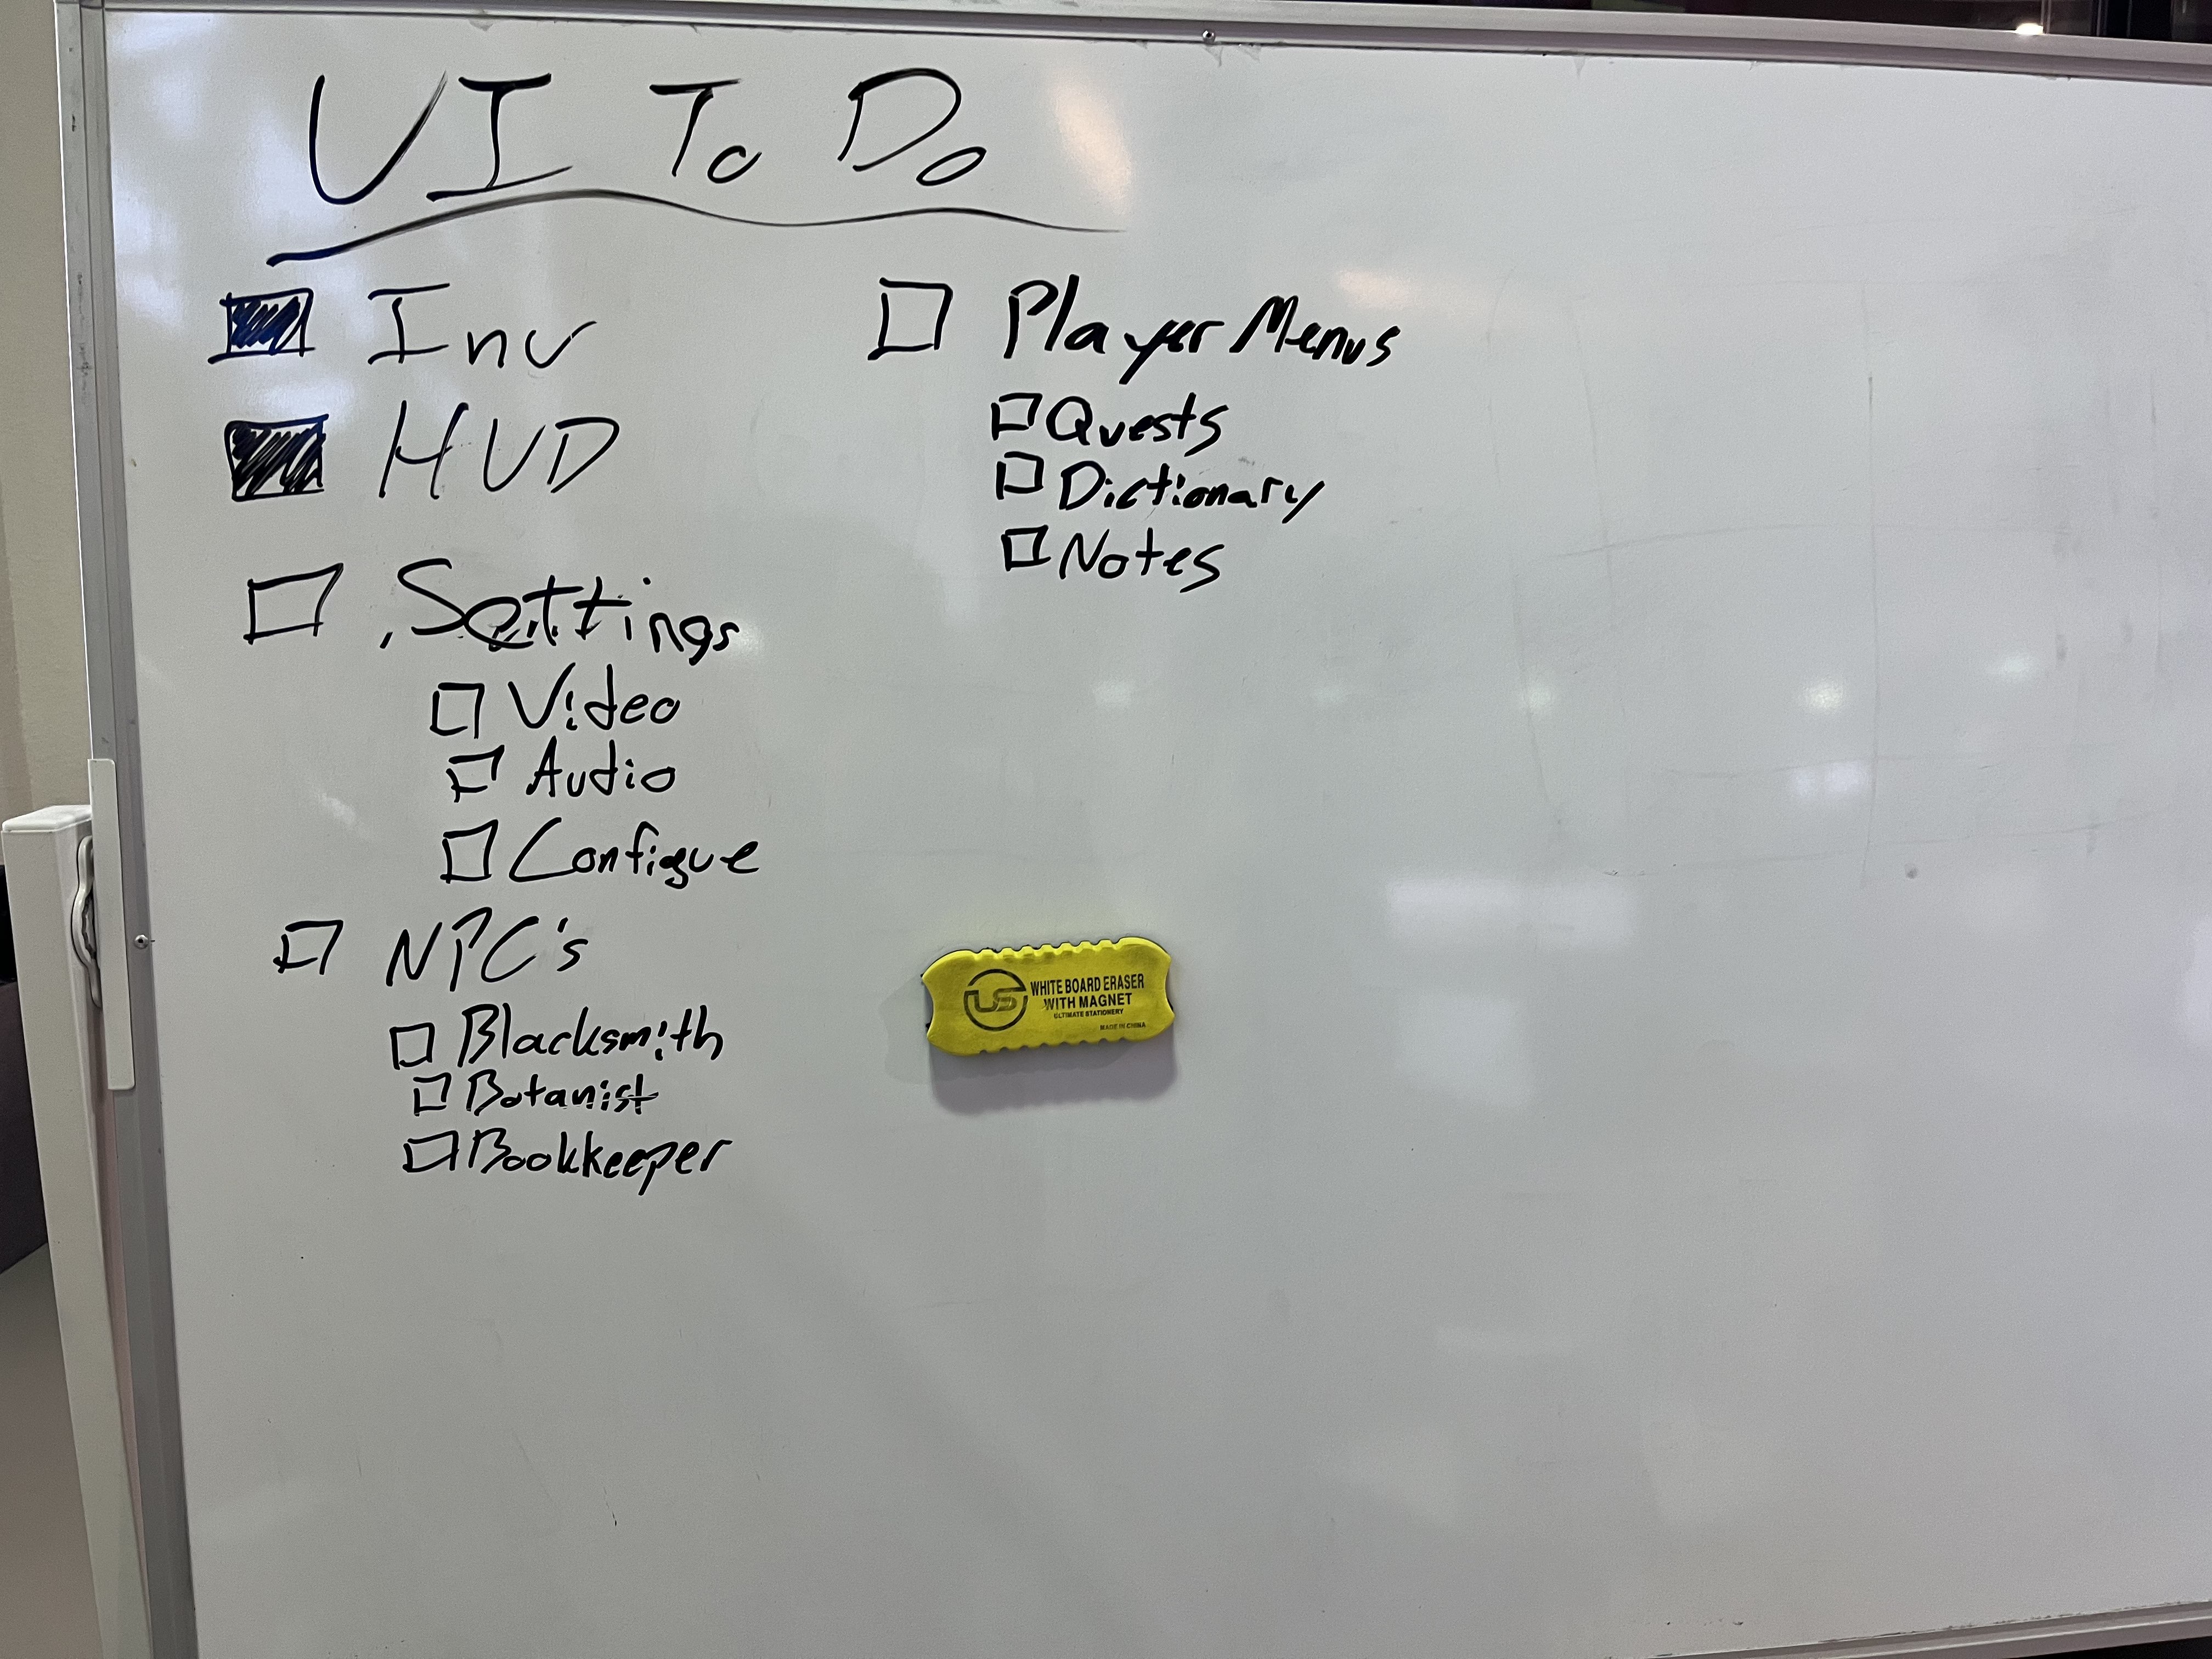 UI To Do
Inv
HUD
Settings
Video
Audio
Configue
NPC's
Blacksmith
Botanist
Bookkeeper
Player Menus
Quests
Dictionary
Notes
US
WHITE BOARD ERASER
WITH MAGNET
ULTIMATE STATIONERY
MADE IN CHINA